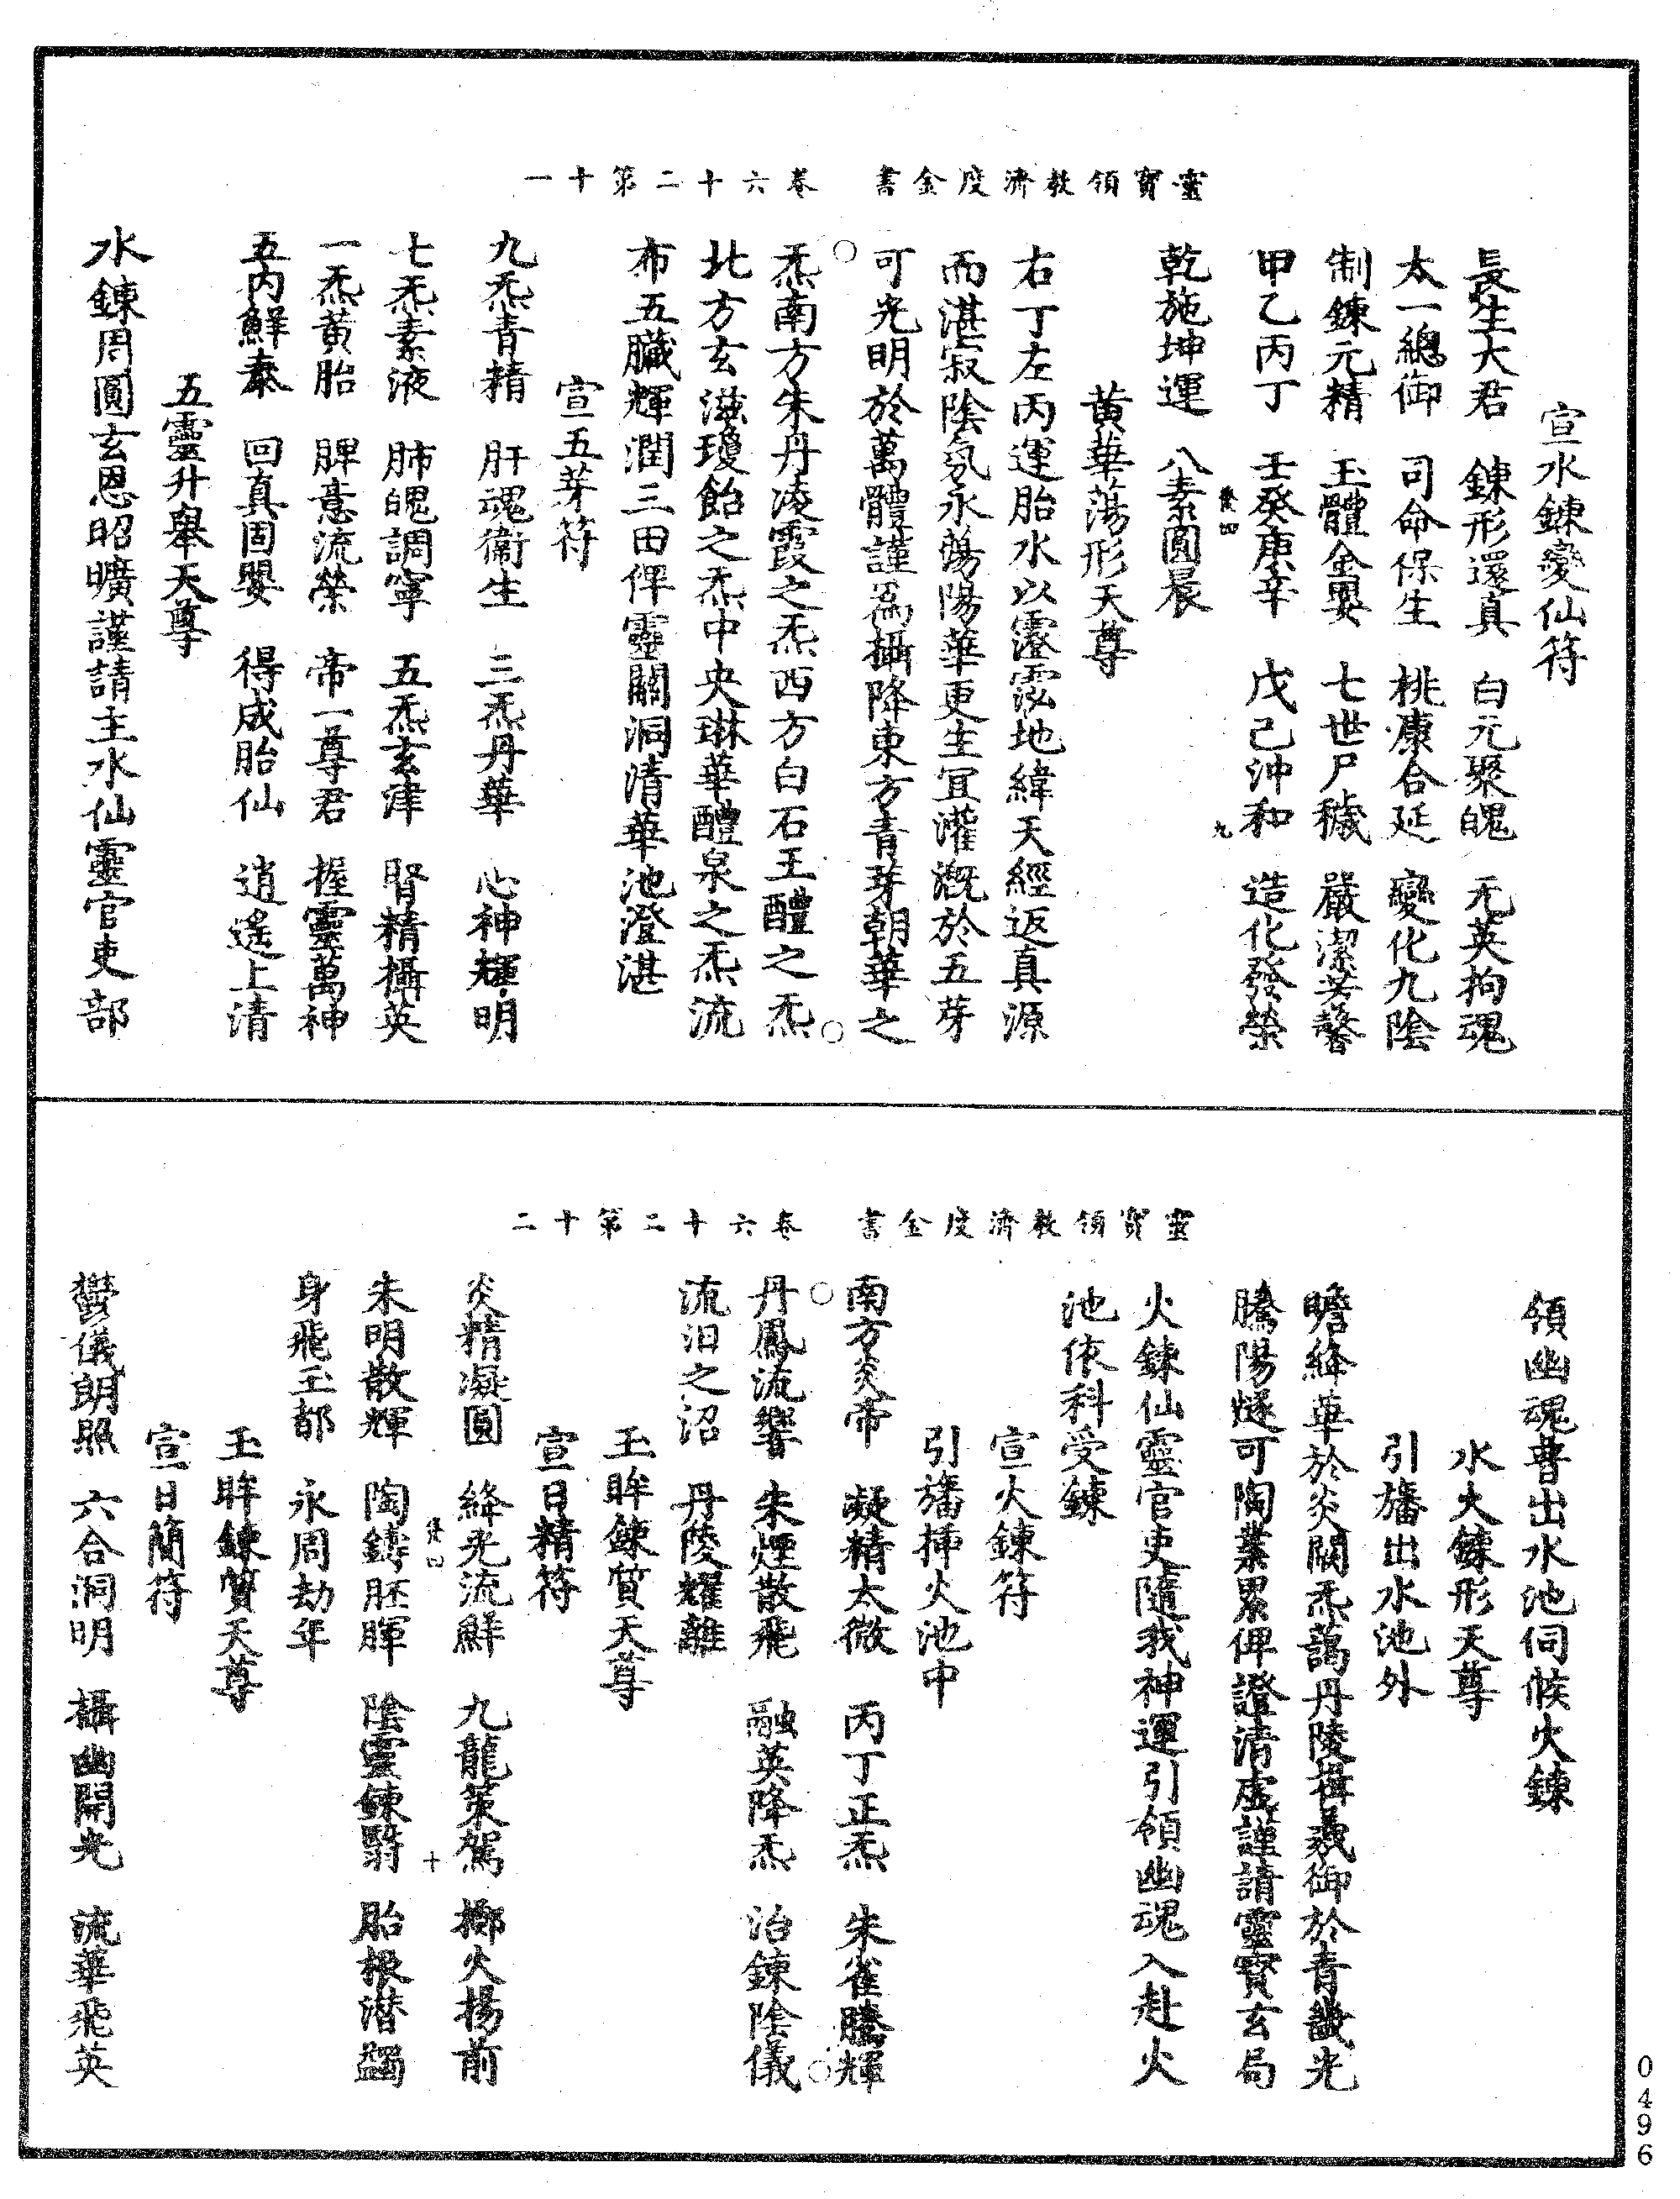 靈寶領教濟度金書　卷六十二第十一
宣水鍊變仙符
長生大君　鍊形還真　白元聚魄　元英拘魂
太一總御　司命保生　桃康合延　變化九陰
制鍊元精　玉體金嬰　七世尸穢　嚴潔芳馨
甲乙丙丁　壬癸庚辛　戊己沖和　造化發榮
養四　九
乾施坤運　八素圓晨
黃華蕩形天尊
右丁左丙運胎水以澄泓地緯天經返真源
而湛寂陰氛永蕩陽華更生冝灌溉於五芽
可光明於萬體謹為攝降東方青芽朝華之
炁南方朱丹凌霞之炁西方白石玉醴之炁
北方玄滋瓊飴之炁中央琳華醴泉之炁流
布五臟輝潤三田俾靈關洞清華池澄湛
宣五芽符
九炁青精　肝魂衛生　三炁丹華　心神輝明
七炁素液　肺魄調寧　五炁玄津　腎精攝英
一炁黃胎　脾意流榮　帝一尊君　握靈萬神
五內鮮泰　回真固嬰　得成胎仙　逍遙上清
五靈升舉天尊
水鍊周圓玄恩昭曠謹請主水仙靈官吏部
靈寶領教濟度金書　卷六十二第十二
領幽魂普出水池伺候火鍊
水火鍊形天尊
引旛出水池外
瞻絳華於炎闕炁藹丹陵揖羲御於青畿光
騰陽燧可陶業累俾證清虛謹請靈寶玄局
火鍊仙靈官吏隨我神運引領幽魂入赴火
池依科受鍊
宣火鍊符
引旛插火池中
南方炎帝　凝精太微　丙丁正炁　朱雀騰輝
丹鳳流響　朱煙散飛　融英降炁　冶鍊陰儀
流汨之沼　丹陵耀離
玉眸鍊質天尊
宣日精符
炎精凝圓　絳光流鮮　九龍策駕　擲火揚前
養四　十
朱明散輝　陶鑄胚暉　陰靈鍊翳　胎根潛蠲
身飛玉都　永周劫年
玉眸鍊質天尊
宣日簡符
鬱儀朗照　六合洞明　攝幽開光　流華飛英
0496